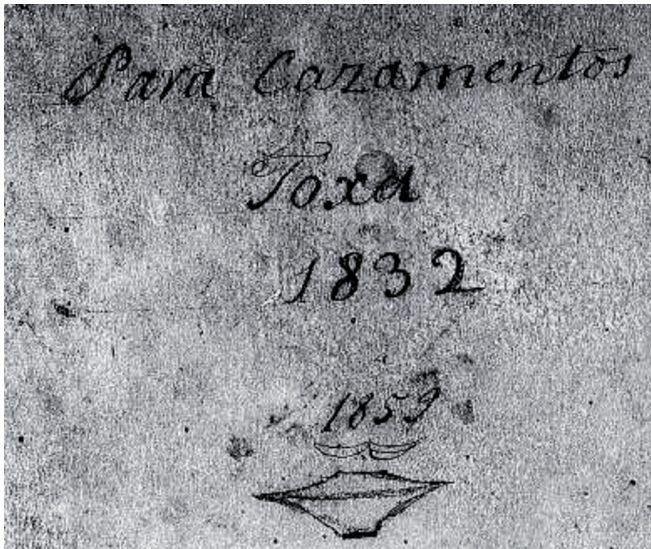 Para Cazamentos
Toxa
1832
1859